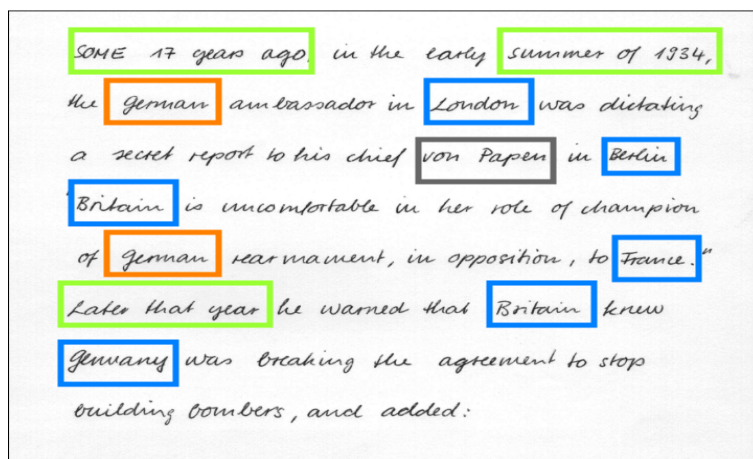 SOME 17 years ago, in the early summer of 1934,
the German ambassador in London was dictating
a secret report to his chief von Papen in Berlin
"Britain is uncomfortable in her role of champion
of German rearmament, in opposition, to France."
Later that year he warned that Britain knew
Germany was breaking the agreement to stop
building bombers, and added: